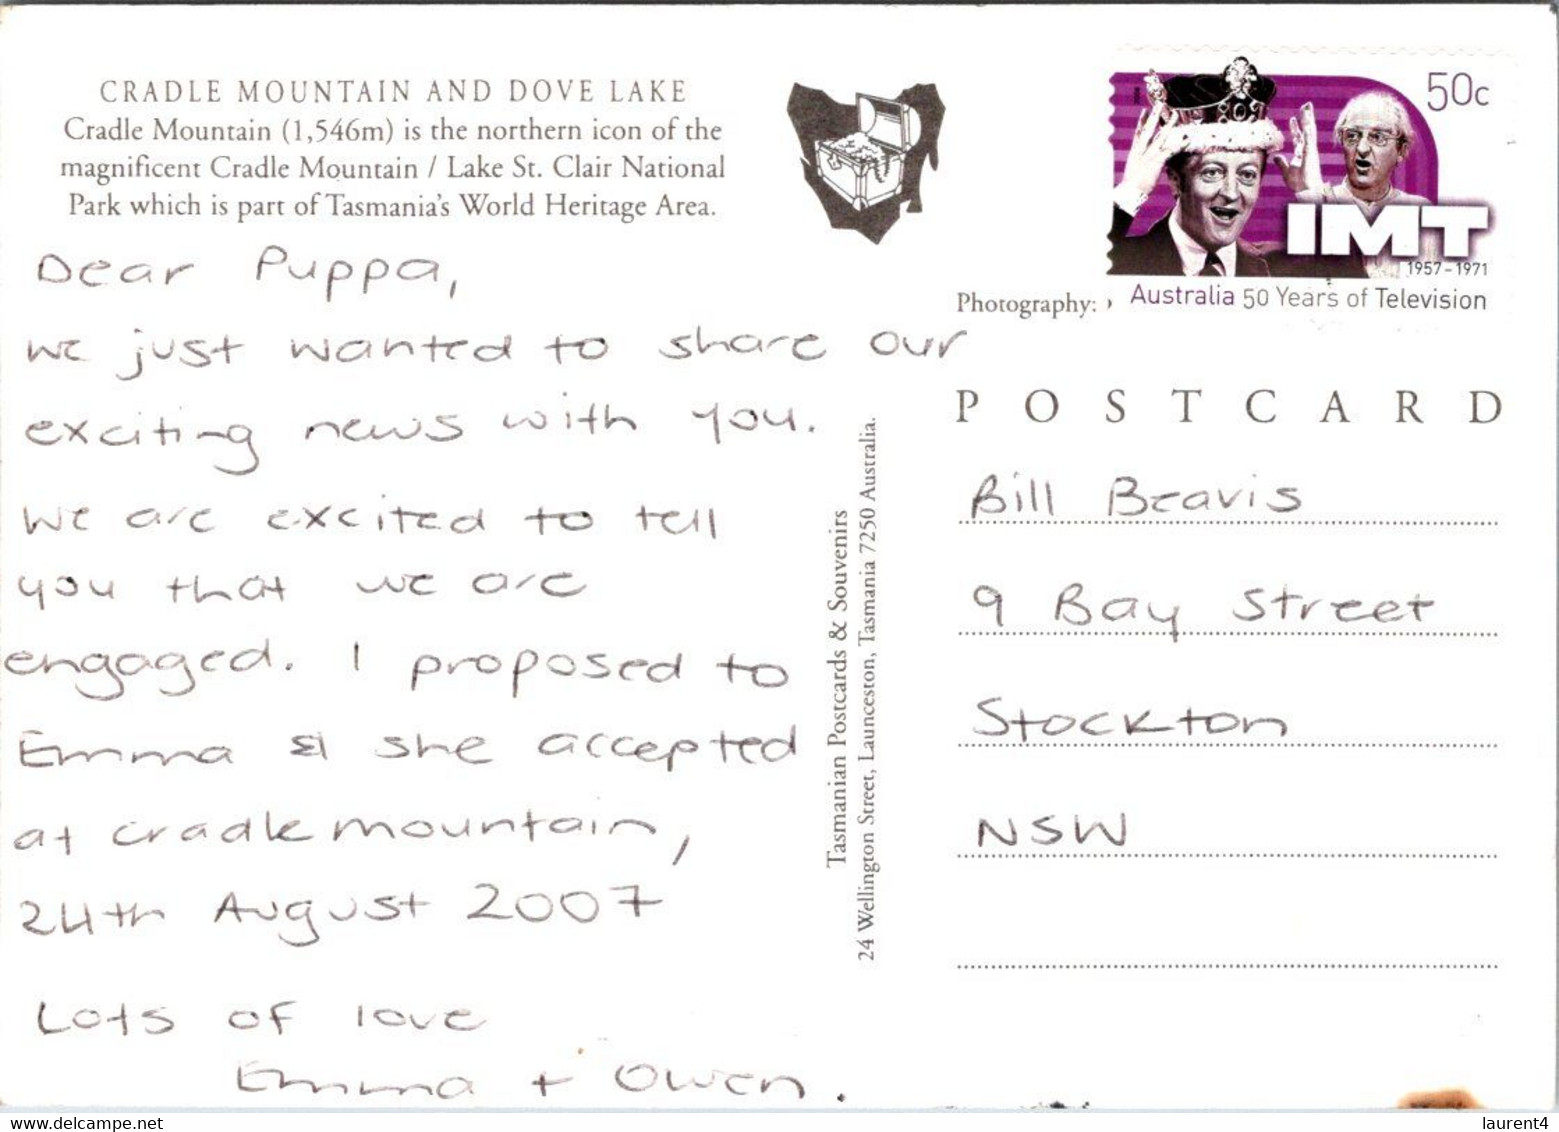 CRADLE MOUNTAIN AND DOVE LAKE
Cradle Mountain (1,546m) is the northern icon of the
magnificent Cradle Mountain / Lake St. Clair National
Park which is part of Tasmania's World Heritage Area.
Dear Puppa,
we just wanted to share our
exciting news with you.
We are excited to tell
you that we are
engaged. I proposed to
Emma & she accepted
at cradle mountain,
24th August 2007
Lots of love
Emma + Owen.
Tasmanian Postcards & Souvenirs
24 Wellington Street, Launceston, Tasmania 7250 Australia.
50c
IMT
1957-1971
Australia 50 Years of Television
Photography:
POSTCARD
Bill Beavis
9 Bay Street
Stockton
NSW
delcampe.net
laurent4